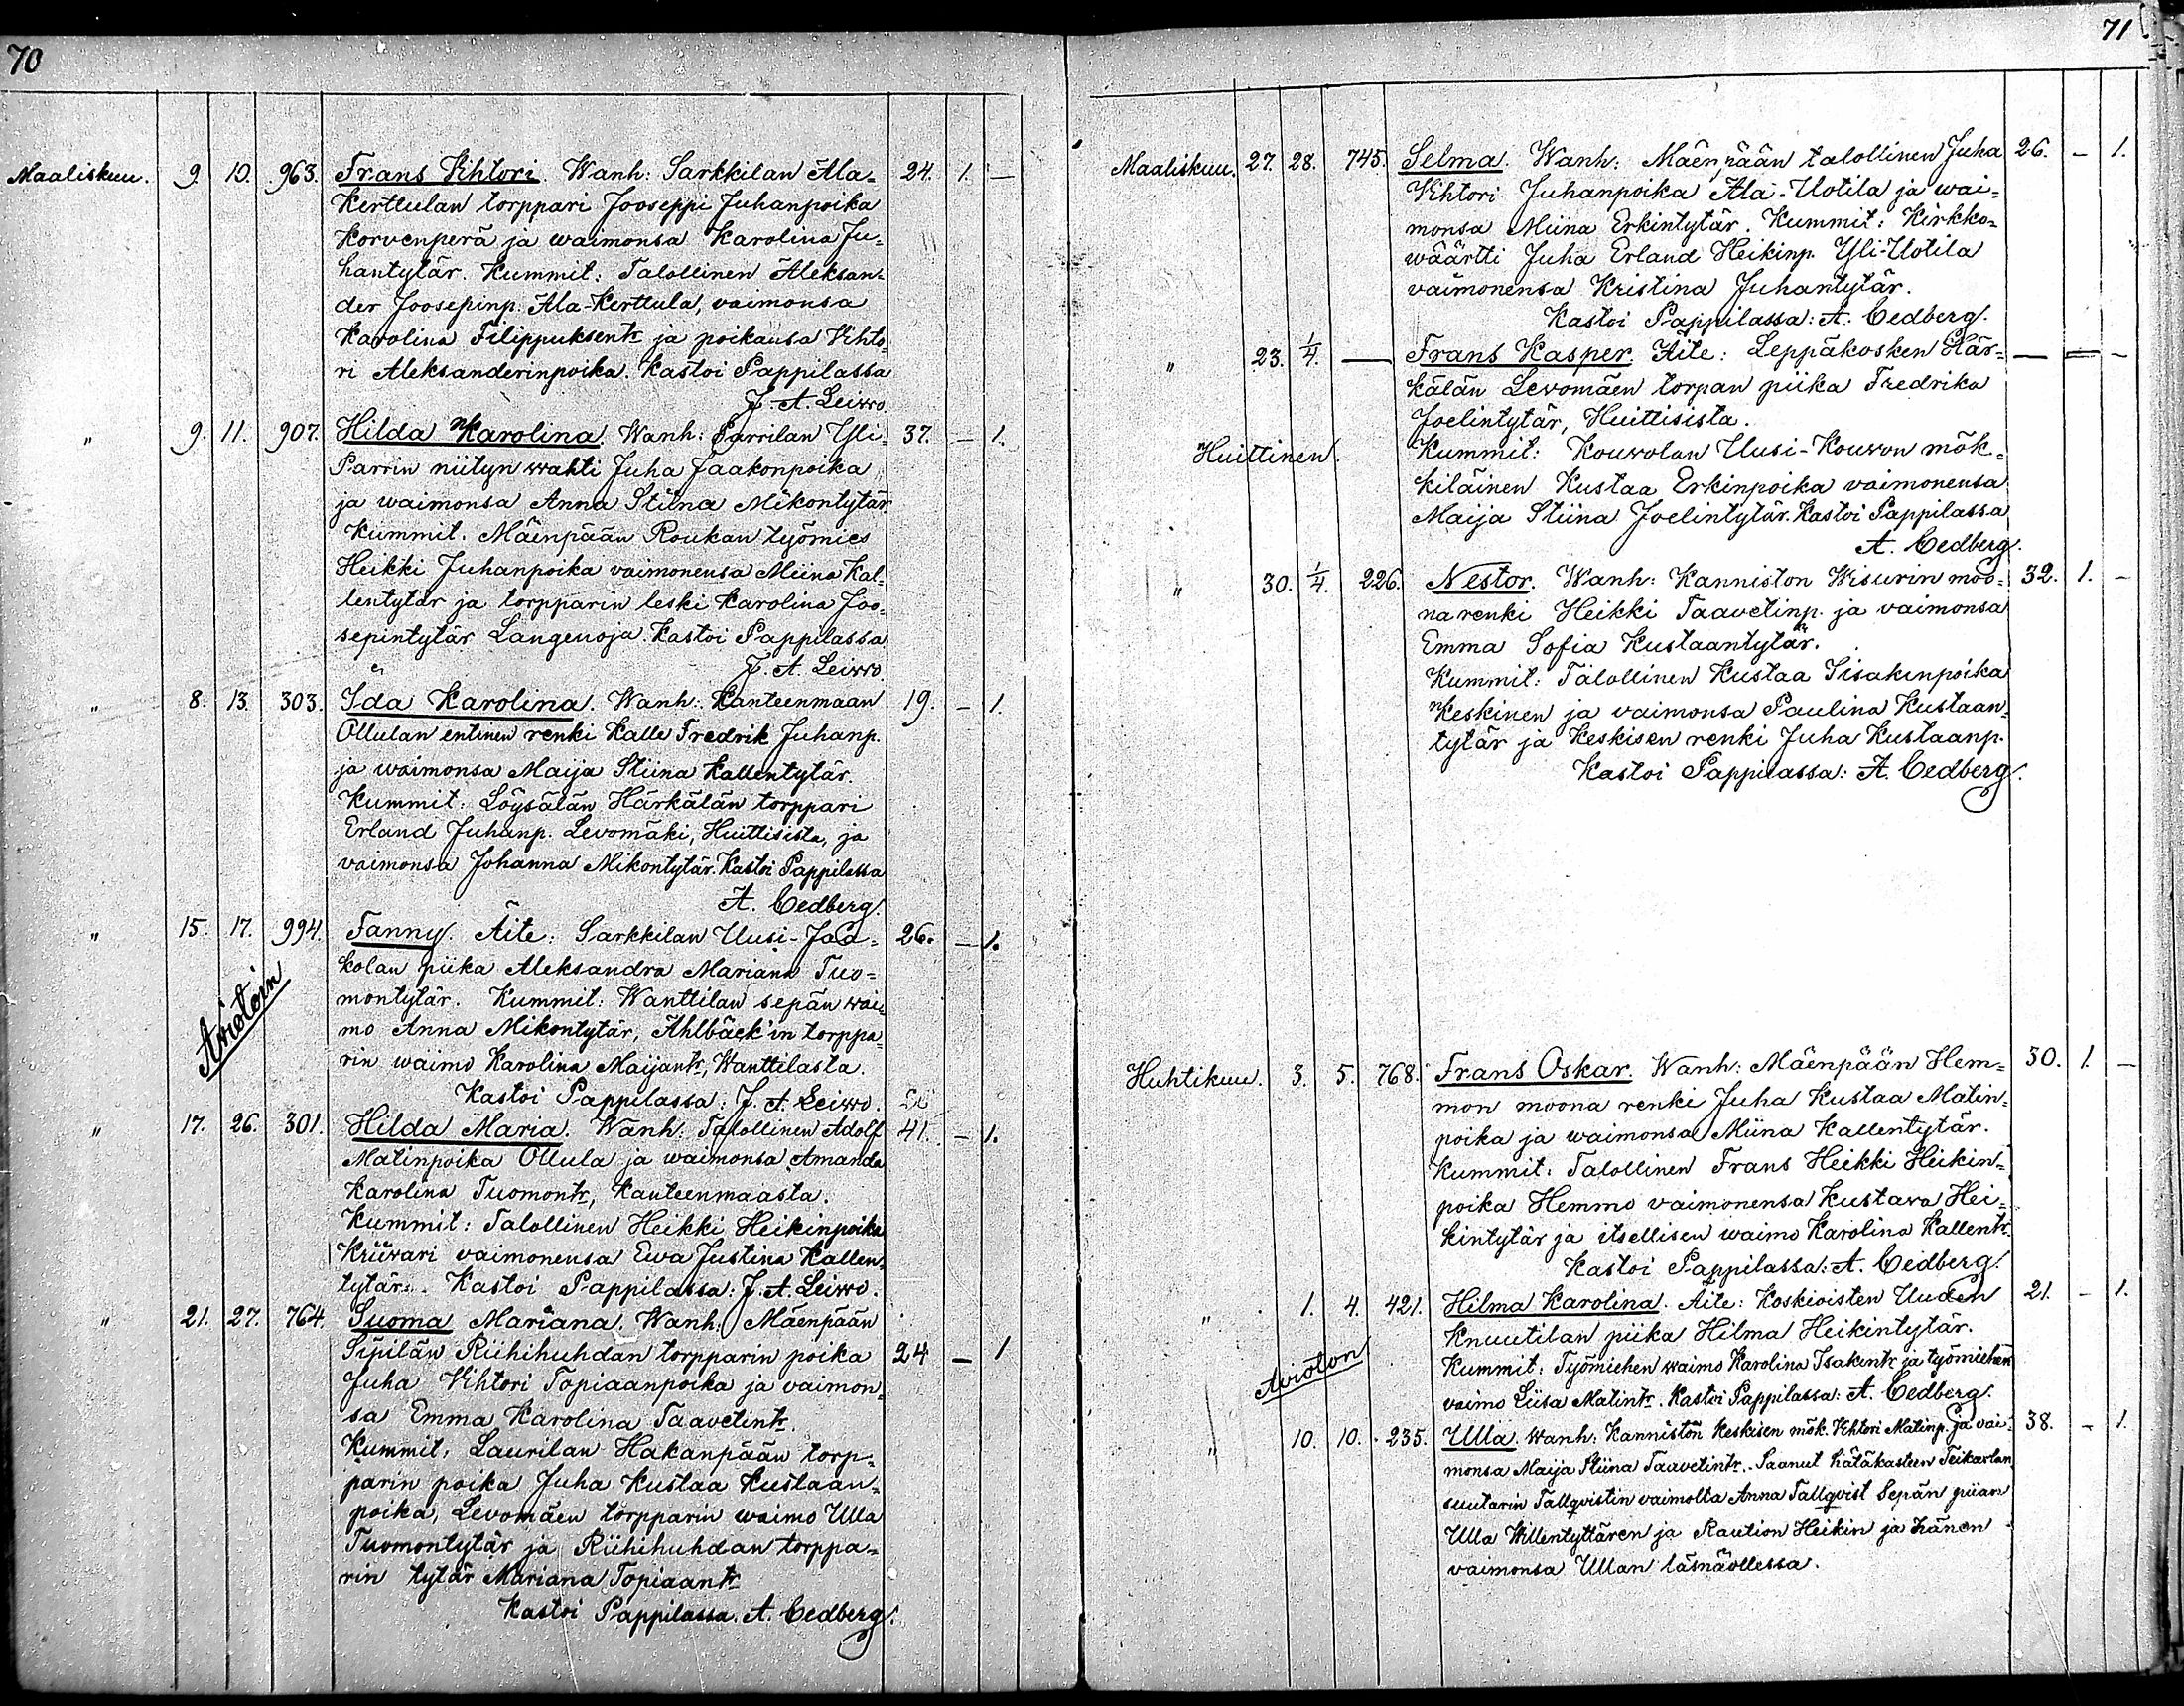 70
Maaliskuu. 9. 10. 963. Frans Vihtori. Wanh: Sarkkilan Ala- 24. 1. —
Kerttulan torppari Jooseppi Juhanpoika
Korvenperä ja waimonsa Karolina Ju-
hantytär. Kummit: Talollinen Aleksan-
der Joosepinp. Ala-Kerttula, vaimonsa
Karolina Filippuksentr ja poikansa Vihto-
ri Aleksanderinpoika. Kastoi Pappilassa
J. A. Leiwo.
" 9. 11. 907. Hilda Karolina. Wanh: Parrilan Yli- 37. — 1.
Parrin niityn wahti Juha Jaakonpoika
ja waimonsa Anna Stiina Mikontytär
Kummit. Mäenpään Roukan työmies
Heikki Juhanpoika vaimonensa Miina Kal-
lentytär ja torpparin leski Karolina Joo-
sepintytär Langenoja. Kastoi Pappilassa
J. A. Leiwo.
" 8. 13. 303. Ida Karolina. Wanh: Kanteenmaan 19. — 1.
Ollulan entinen renki Kalle Fredrik Juhanp.
ja waimonsa Maija Stiina Kallentytär.
Kummit: Löysälän Härkälän torppari
Erland Juhanp. Levomäki, Huittisista, ja
vaimonsa Johanna Mikontytär. Kastoi Pappilassa
A. Cedberg.
" 15. 17. 994. Fanny. Äite: Sarkkilan Uusi-Jaa- 26. — 1.
kolan piika Aleksandra Mariana Tuo-
Aviotoin
montytär. Kummit: Wanttilan sepän wai-
mo Anna Mikontytär, Ahlbäck'in torppa-
rin waimo Karolina Maijantr, Wanttilasta.
Kastoi Pappilassa: J. A. Leiwo.
" 17. 26. 301. Hilda Maria. Wanh: Talollinen Adolf 41. — 1.
Matinpoika Ollula ja waimonsa Amanda
Karolina Tuomontr, Kanteenmaasta.
Kummit: Talollinen Heikki Heikinpoika
Kriiwari vaimonensa Ewa Justina Kallen-
tytär. Kastoi Pappilassa: J. A. Leiwo.
" 21. 27. 764. Suoma Mariana. Wanh: Mäenpään
Sipilän Riihihuhdan torpparin poika 24 — 1
Juha Vihtori Topiaanpoika ja vaimon-
sa Emma Karolina Taavetintr.
Kummit, Laurilan Hakanpään torp-
parin poika Juha Kustaa Kustaan-
poika, Levomäen torpparin waimo Ulla
Tuomontytär ja Riihihuhdan torppa-
rin tytär Mariana Topiaantr
Kastoi Pappilassa. A. Cedberg.
71
Maaliskuu. 27. 28. 745. Selma. Wanh: Mäenpään talollinen Juha 26. — 1.
Vihtori Juhanpoika Ala-Uotila ja wai-
monsa Miina Erkintytär. Kummit: Kirkko-
wäärtti Juha Erland Heikinp. Yli-Uotila
vaimonensa Kristina Juhantytär.
Kastoi Pappilassa: A. Cedberg.
" 23. 1/4. — Frans Kasper. Äite: Leppäkosken Här- — — —
kälän Levomäen torpan piika Fredrika
Joelintytär, Huittisista.
Huittinen. Kummit: Kouvolan Uusi-Kouvon mök-
kiläinen Kustaa Erkinpoika vaimonensa
Maija Stiina Joelintytär. Kastoi Pappilassa
A. Cedberg.
" 30. 1/4. 226. Nestor. Wanh: Kanniston Wisurin moo- 32. 1. —
na renki Heikki Taavetinp. ja vaimonsa
Emma Sofia Kustaantytär.
Kummit: Talollinen Kustaa Iisakinpoika
Keskinen ja vaimonsa Paulina Kustaan-
tytär ja Keskisen renki Juha Kustaanp.
Kastoi Pappilassa: A. Cedberg.
Huhtikuu. 3. 5. 768. Frans Oskar. Wanh: Mäenpään Hem- 30. 1. —
mon moona renki Juha Kustaa Matin-
poika ja waimonsa Miina Kallentytär.
Kummit: Talollinen Frans Heikki Heikin-
poika Hemmo vaimonensa Kustava Hei-
kintytär ja itsellisen waimo Karolina Kallentr.
Kastoi Pappilassa: A. Cedberg.
" 1. 4. 421. Hilma Karolina. Äite: Koskioisten Uuden 21. — 1.
Knuutilan piika Hilma Heikintytär.
Avioton
Kummit: Työmiehen waimo Karolina Isakintr ja työmiehen
vaimo Liisa Matintr. Kastoi Pappilassa: A. Cedberg.
" 10. 10. 235. Ulla. Wanh: Kanniston Keskisen mök. Vihtori Matinp. ja vai- 38. — 1.
monsa Maija Stiina Taavetintr. Saanut hätäkasteen Teikarlan
suutarin Tallqvistin vaimolta Anna Tallqvist Sepän piian
Ulla Willentyttären ja Raution Heikin ja hänen
vaimonsa Ullan läsnäollessa.